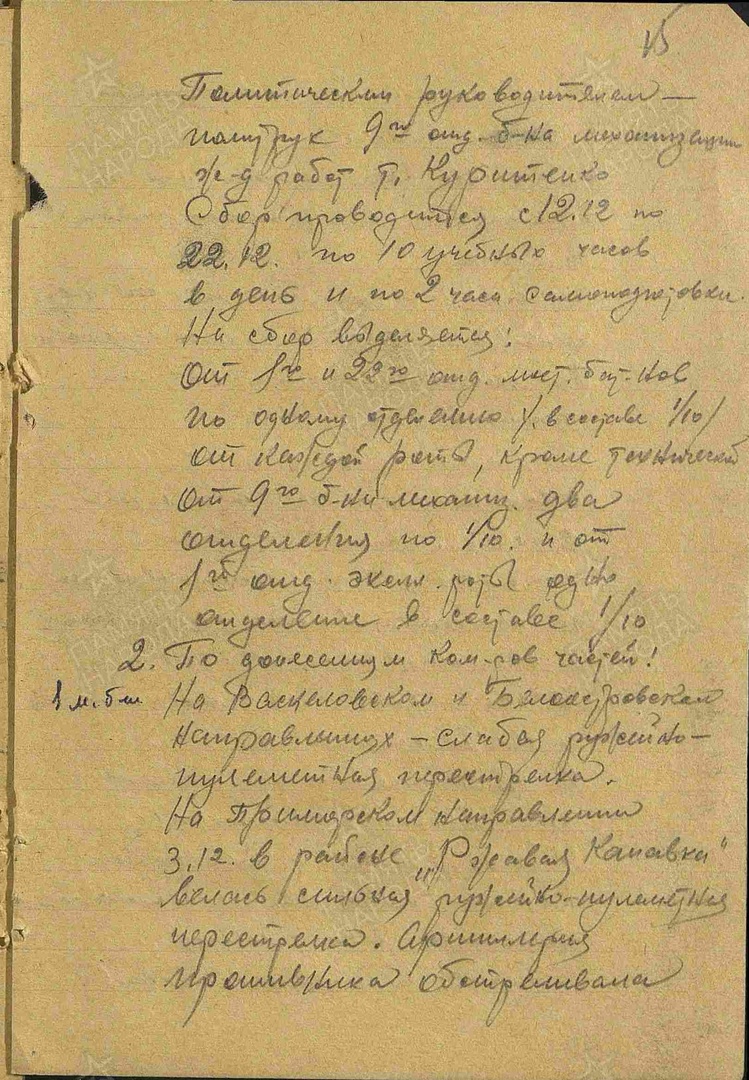 15
Политическим руководителем —
политрук 9го отд. б-на механизации
ж-д работ т. Куритенко
Сбор проводится с 12.12 по
22.12. по 10 учебных часов
в день и по 2 часа самоподготовки.
На сбор выделяется:
От 1го и 22го отд. мост. бат-нов
по одному отделению /в составе 1/10/
от каждой роты, кроме технической
От 9го б-на механиз. два
отделения по 1/10. и от
1й отд. экспл. роты одно
отделение в составе 1/10
2. По донесениям ком-ров частей:
1 м. б-н На Васкеловском и Белоостровском
направлениях – слабая ружейно-
пулеметная перестрелка.
На Приморском направлении
3.12. в районе "Ржавая Канавка"
велась сильная ружейно-пулеметная
перестрелка. Артиллерия
противника обстреливала
ПАМЯТЬ НАРОДА